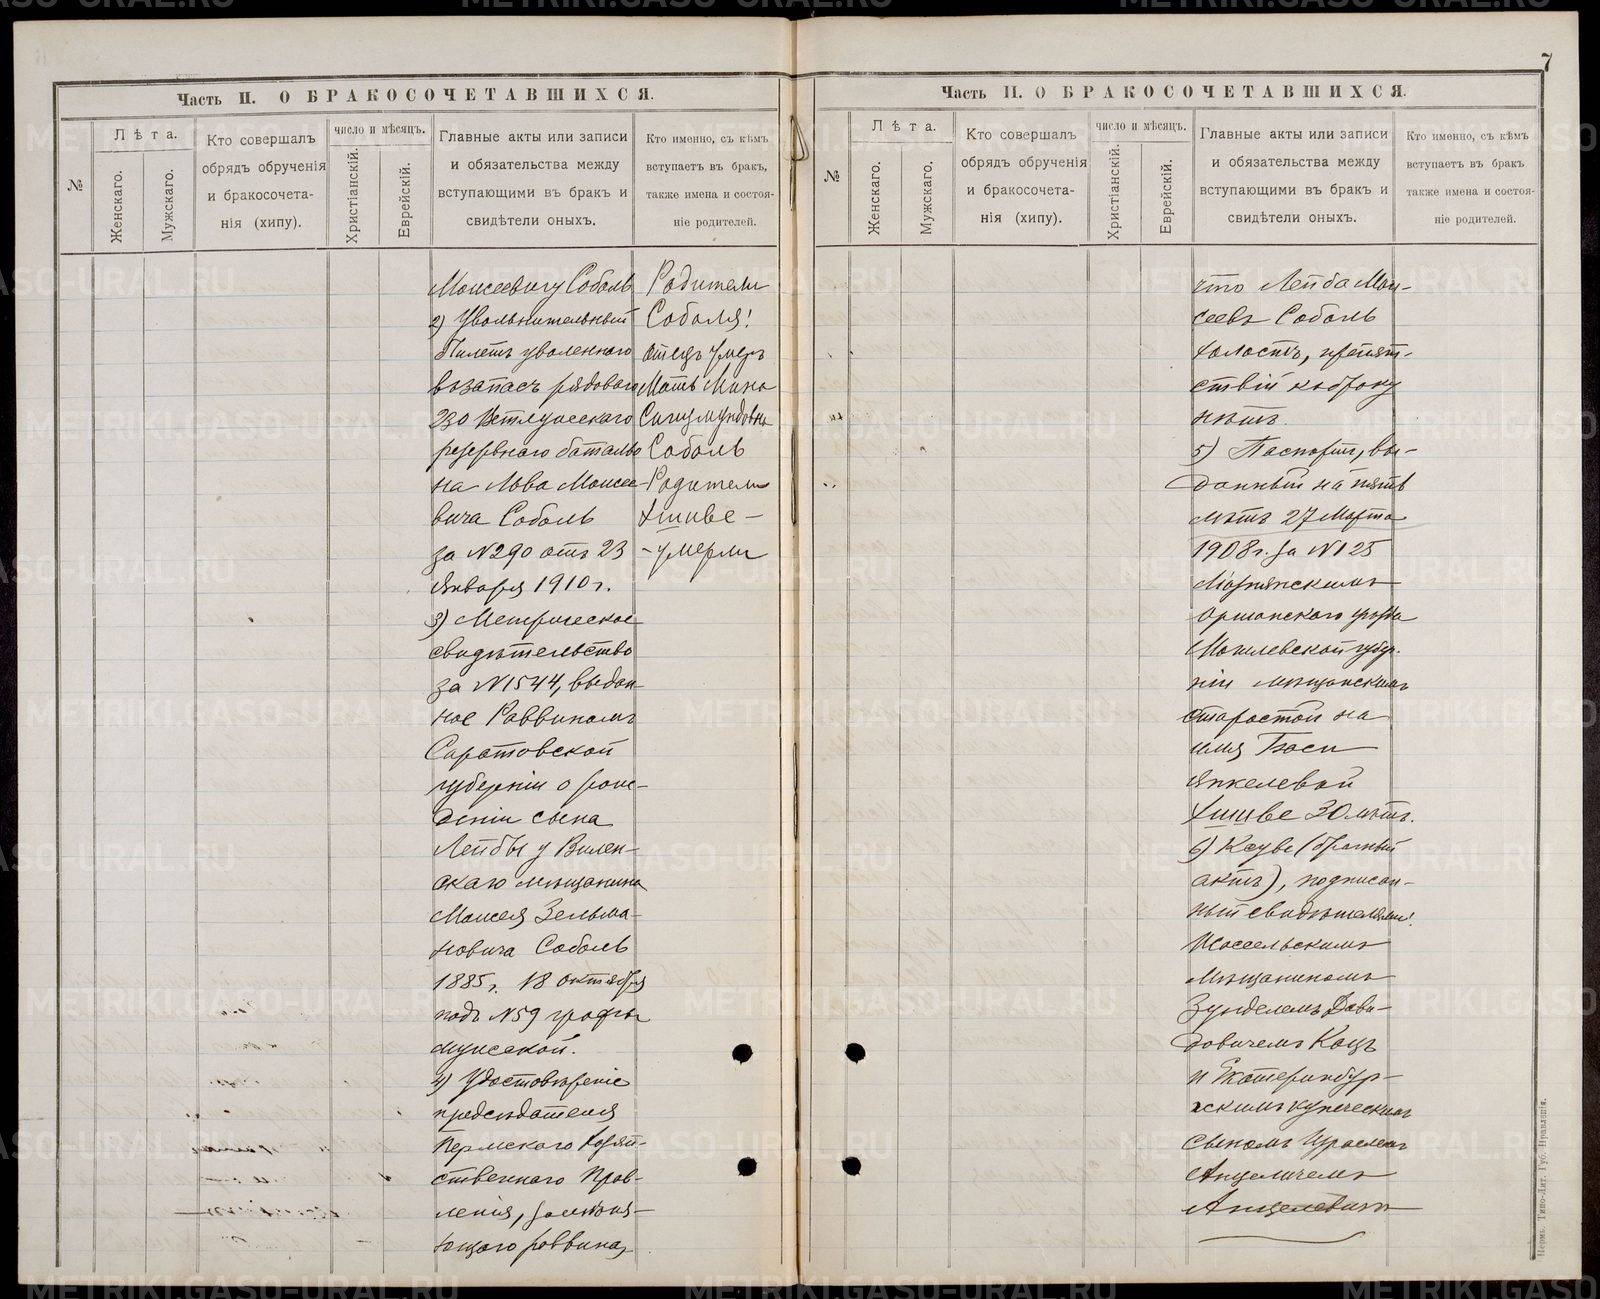 Часть II. О БРАКОСОЧЕТАВШИХСЯ.
№
Лѣта.
Женскаго.
Мужскаго.
Кто совершалъ
обрядъ обрученія
и бракосочета-
нія (хипу).
число и мѣсяцъ.
Христіанскій.
Еврейскій.
Главные акты или записи
и обязательства между
вступающими въ бракъ и
свидѣтели оныхъ.
Кто именно, съ кѣмъ
вступаетъ въ бракъ,
также имена и состоя-
ніе родителей.
Моисеевичу Соболь
2) Увольнительный
билетъ уволенного
въ запасъ рядоваго
230 Ветлужскаго
резервнаго баталіо
на Лѣва Моисее-
вича Соболь
за №290 отъ 23
Января 1910 г.
3) Метрическое
свидѣтельство
за №1544, выдан-
ное Раввиномъ
Саратовской
губерніи о рож-
деніи сына
Лейбы у Вилен-
скаго мѣщанина
Моисея Зельма-
новича Соболь
1885 г. 18 октября
подъ №59 графы
мужской.
4) Удостовѣреніе
предсѣдателя
Пермскаго Хозяй-
ственнаго Прав-
ленія, замѣня-
ющаго раввина,
Родители
Соболя:
отецъ умеръ
Мать Мина
Сигизмундовна
Соболь
Родители
Хишве -
- умерли
7
Часть II. О БРАКОСОЧЕТАВШИХСЯ.
№
Лѣта.
Женскаго.
Мужскаго.
Кто совершалъ
обрядъ обрученія
и бракосочета-
нія (хипу).
число и мѣсяцъ.
Христіанскій.
Еврейскій.
Главные акты или записи
и обязательства между
вступающими въ бракъ и
свидѣтели оныхъ.
Кто именно, съ кѣмъ
вступаетъ въ бракъ,
также имена и состоя-
ніе родителей.
что Лейба Мои-
сеевъ Соболь
холостъ, препят-
ствій къ браку
нѣтъ.
5) Паспортъ, вы-
данный на пять
лѣтъ 27 Марта
1908 г. за №125
Оршанскаго уѣзда
Могилевской губер-
ніи мѣщанскимъ
старостой на
имя Баси
Янкелевой
Хишве 30 лѣтъ.
6) Ксуве (брачный
актъ), подписан-
ный свидѣтелями:
мѣщаниномъ
Зунделемъ Дави-
довичемъ Кацъ
и Екатеринбург-
скимъ купеческимъ
сыномъ Израилемъ
Анцелевичъ
Пермь. Типо-Лит. Губ. Правленія.
METRIKI.GASO-URAL.RU